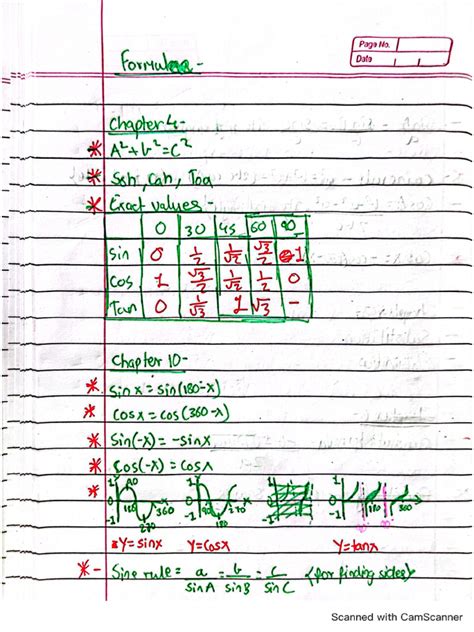 Page No.
Date
Formulae -
Chapter 4:-
* A²+b²=C²
* Soh, Cah, Toa
* Exact values -
0 30 45 60 90
sin 0 1/2 1/√2 √3/2 1
Cos 1 √3/2 1/√2 1/2 0
Tan 0 1/√3 1 √3 -
Chapter 10-
* Sin x = sin(180-x)
* Cosx = cos(360-x)
* Sin(-x) = -sinx
* Cos(-x) = Cosx
* 1 -1 90 180 270 360 x 1 -1 90 180 270 1 -1 1 -1 180 360
Y=sinx Y=Cosx Y=tanx
* - Sine rule = a/SinA = b/SinB = c/SinC (for finding sides)
Scanned with CamScanner